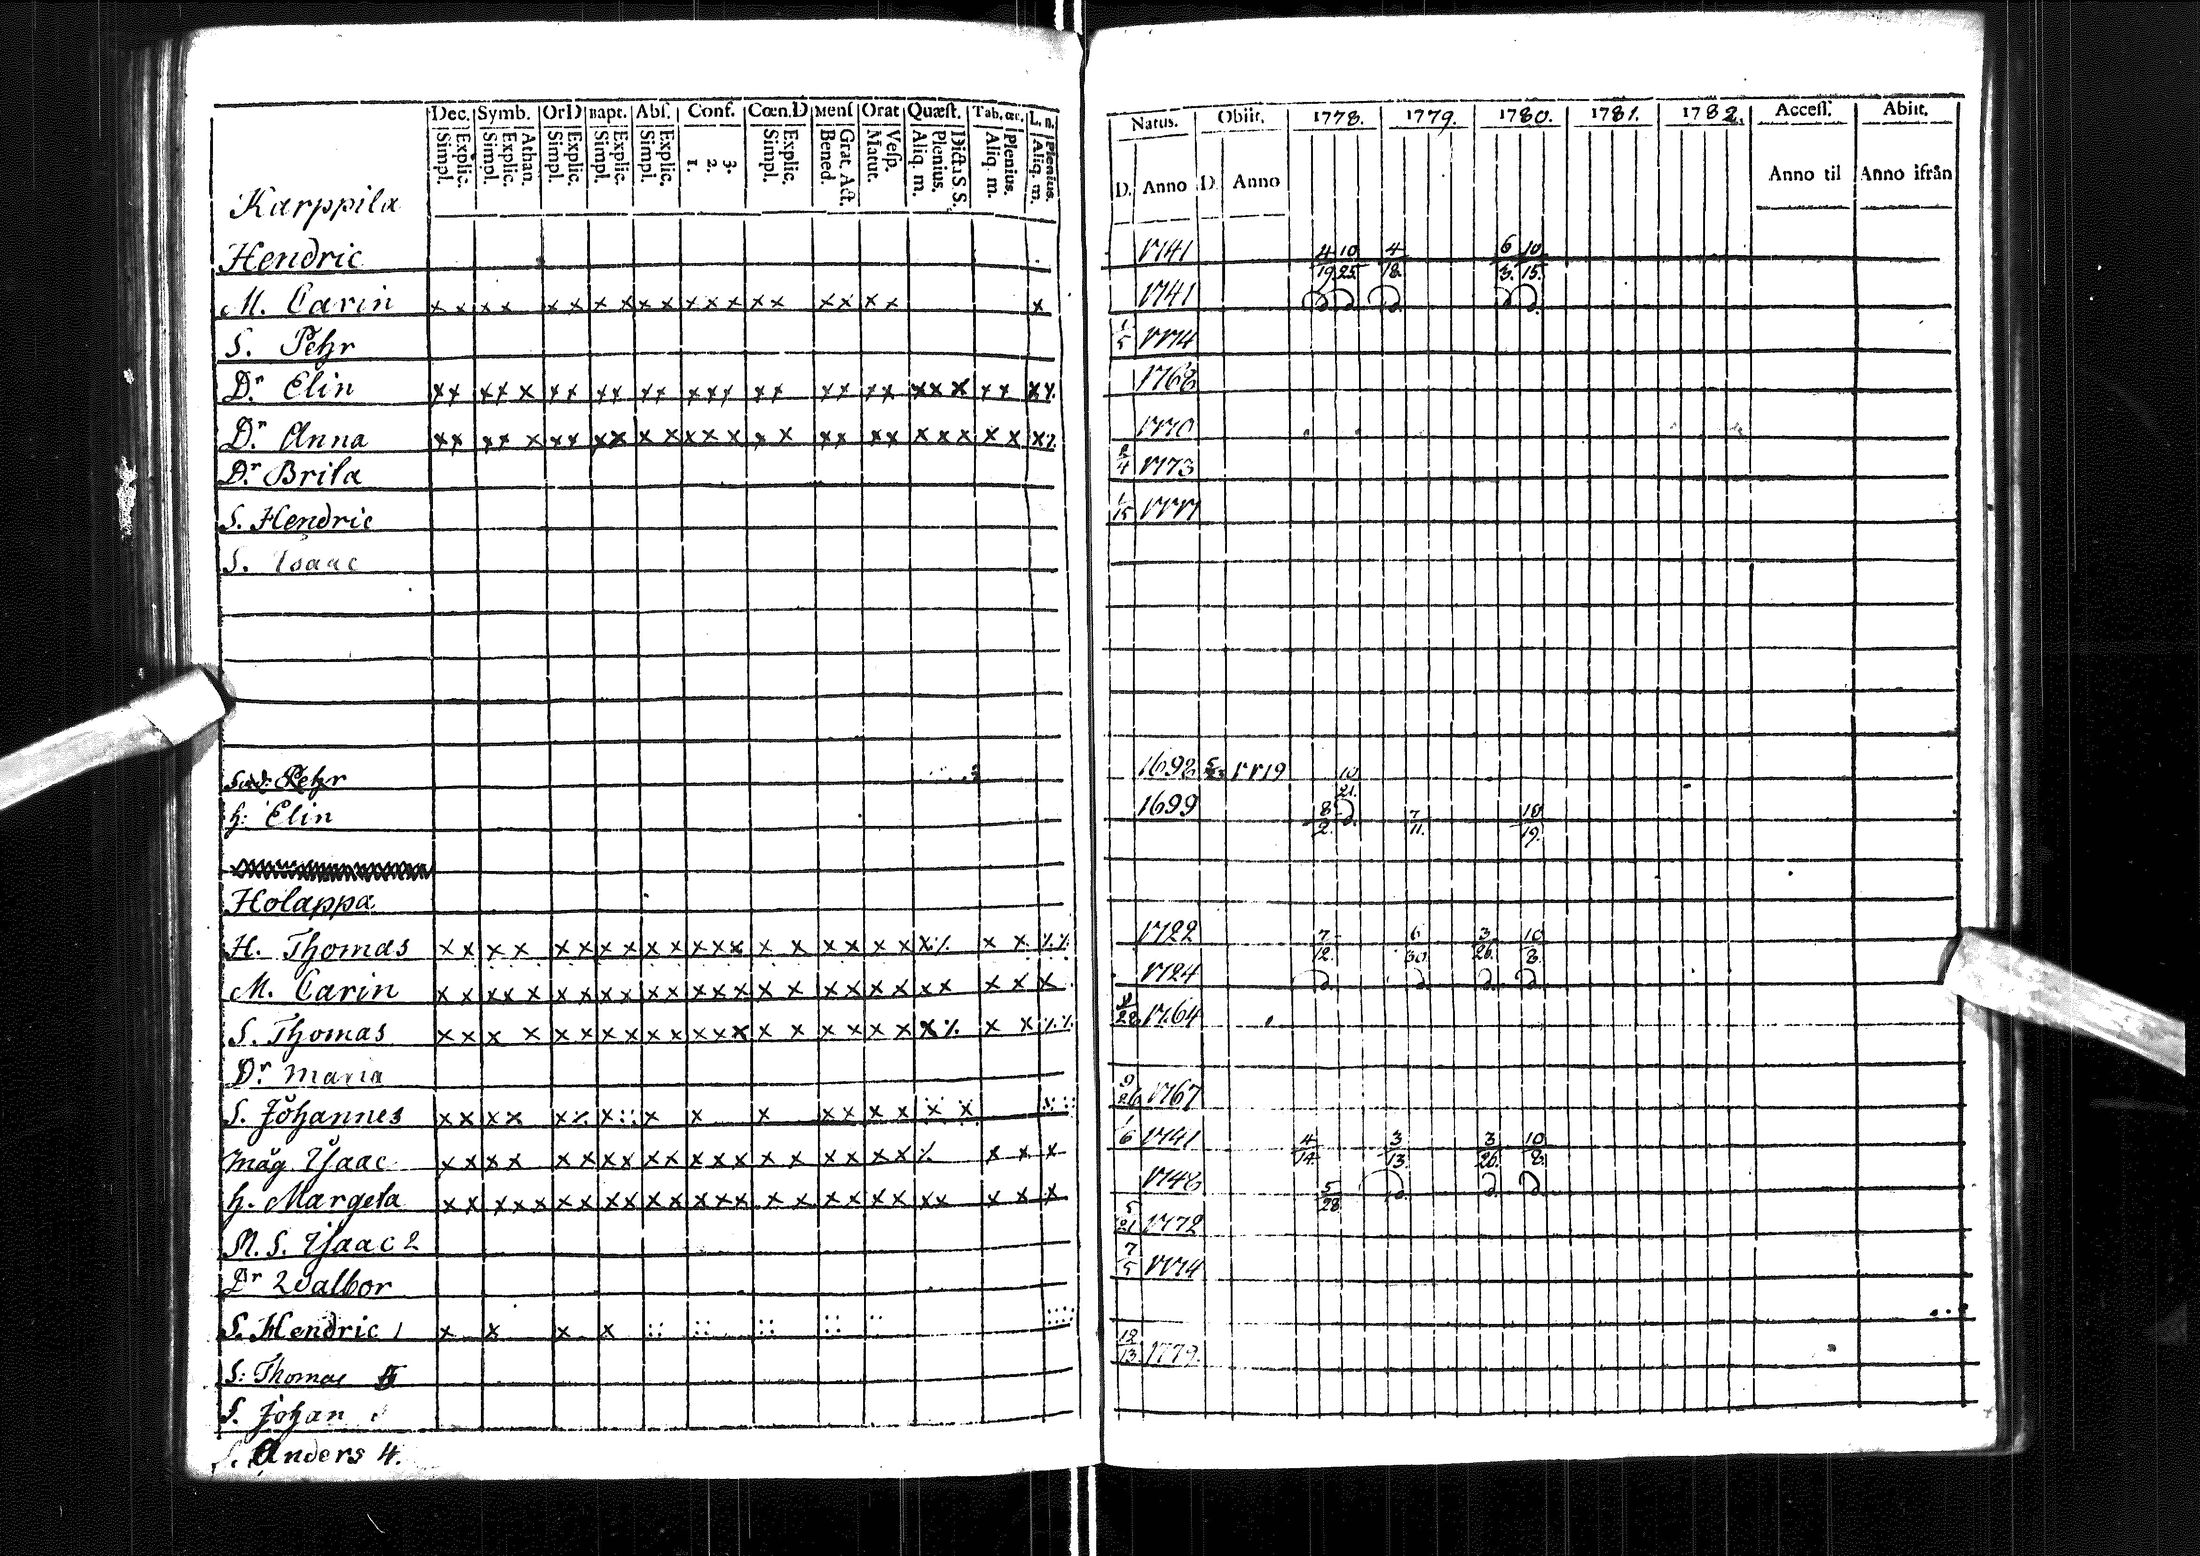 Dec. Symb. OrD Bapt. Abs. Conf. Cœn.D Mens Orat Quæst. Tab. œc. L. n.
Simpl. Explic. Simpl. Explic. Athan. Simpl. Explic. Simpl. Explic. Simpl. Explic. 1. 2. 3. Simpl. Explic. Bened. Grat. Act. Matut. Vesp. Aliq. m. Plenius. Dicta S S. Aliq. m. Plenius. Aliq. m. Plenius.
Karppila
Hendric
M. Carin x x x x x x x x x x x x x x x x x x x x
S. Pehr
Dr Elin x x x x x x x x x x x x x x x x x x x x x x x x x x x
Dr Anna x x x x x x x x x x x x x x x x x x x x x x x x x x x
Dr Brita
S. Hendric
S. Isaac
Pehr
h: Elin
Holappa
H. Thomas
M. Carin
S. Thomas
Dr Maria
S. Johannes
Måg Isaac
h. Margeta
M. S. Isaac 2
Dr Walbor
S. Hendric 1
S: Thomas
S. Johan
S. Anders 4.
Natus. Obiit. 1778. 1779. 1780. 1781. 1782. Access. Abiit.
D. Anno D. Anno Anno til Anno ifrån
1741 4/19 10/25 4/18 6/3. 10/15.
1741
1/5 1774
1768
1770
1773
1/15 1777
1698 1779 10/21.
1699 8/2. 7/11. 10/19.
1722 7/12. 6/30. 3/26. 10/8.
1724
1764
9/26 1767
1/6 1741 4/14. 3/13. 3/26. 10/8.
1748 5/28
5/21 1772
7/5 1774
12/13. 1779.